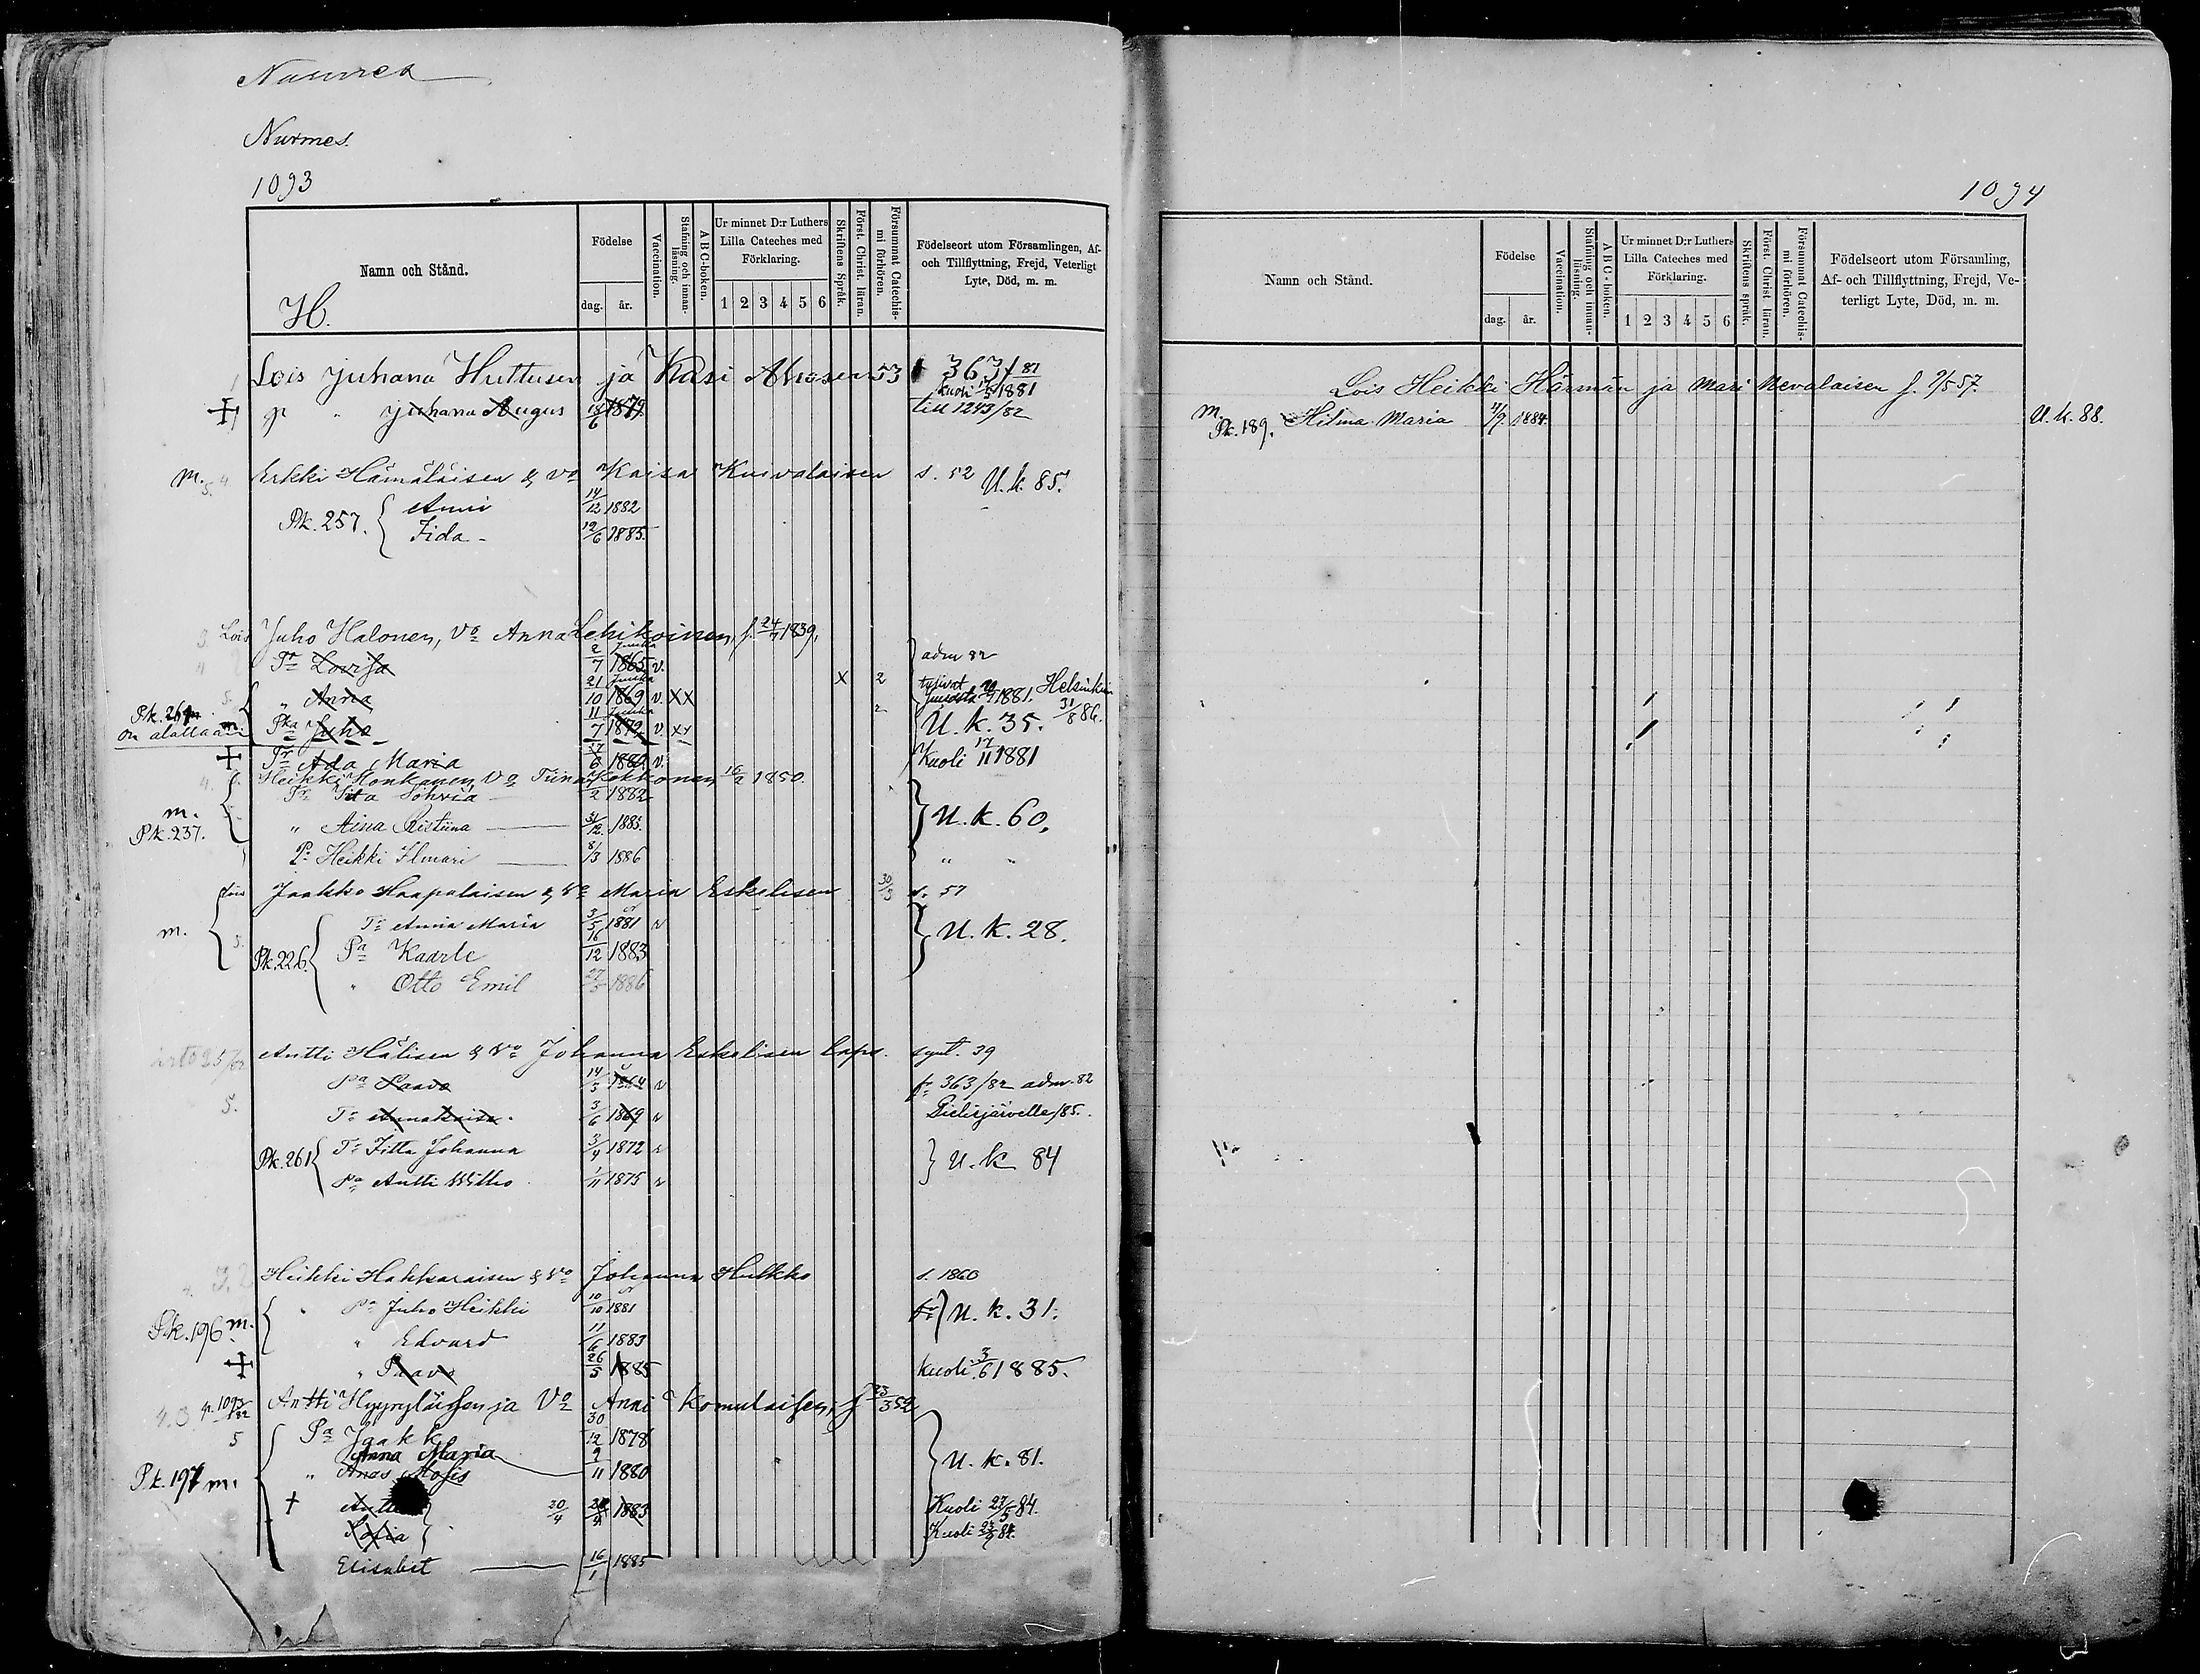 Nurmes
Nurmes.
1093
Namn och Stånd.
H.
Födelse
dag. år.
Vaccination.
Stafning och innanläsning.
A B C-boken.
Ur minnet D:r Luthers Lilla Cateches med Förklaring.
1 2 3 4 5 6
Skriftens Språk.
Först. Christ. läran.
Försummat Catechismi förhören.
Födelseort utom Församlingen, Af- och Tillflyttning, Frejd, Veterligt Lyte, Död, m. m.
Lois Juhana Huttusen ja Kasi Ahosen 53 363/81
Juhana Augus 18/6 1879. kuoli 1881 till 1243/82
m. Erkki Hämäläisen & Vo Kaisa Kuivalaisen s. 52 U.k. 85.
Pk. 257. Anni 14/12 1882
Iida 19/6 1885.
Lois Juho Halonen, Vo Anna Lehikoinen, f. 24/7 1839.
Tr Lovisa 2/7 1865 v. x 2 adm 82
" Anna 21/10 1869 v. xx 1881. Helsinkiin 31/8 86.
Pka Juho 11/7 1879 v. xx U.k. 35.
Tr Ada Maria 6 1880 v. Kuoli 17/11 1881
Heikki Honkanen, Vo Tiina Kokkonen, 16/2 1850.
Tr Ida Sohvia 2 1882
m. Pk. 237. " Aina Kristiina 31/12 1883. U.k. 60.
P. Heikki Ilmari 8/3 1886 " "
Jaakko Haapalaisen & Vo Maria Eskelisen 30/3 s. 57
m. Tr Anna Maria 3/5 1881 v U.k. 28.
Pk. 226. Pa Kaarle 16/12 1883
" Otto Emil 27/3 1886
Antti Hälisen & Vo Johanna Eskelisen laps. synt. 39
Pa Paavo 14/3 1864 v fr 363/82 adm. 82
5. Tr Annakaisa. 3/6 1869 v Pielisjärvelle /85.
Pk. 261 Tr Iitta Johanna 3/4 1872 v U.k 84
Pa Antti Wilho 1/11 1875 v
Heikki Hakkaraisen & Vo Johanna Hulkko s. 1860
Pk. 196 m. Pa Juho Heikki 10/10 1881 U.k. 31.
" Edvard 11/6 1883
" Paavo 26/5 1885 kuoli 3/6 1885.
Antti Hyyryläisen ja Vo Anni Komulaisen, f 23/3 52
5 Pa Jaakk 30/12 1878
Anna Maria
Pk. 197 m. " 9/11 1880 U.k. 81.
20/4 1883 Kuoli 27/5 84.
Sofia Kuoli 84.
Elisabet 16/1 1885
1094
Namn och Stånd.
Födelse
dag. år.
Vaccination.
Stafning och innanläsning.
A B C-boken.
Ur minnet D:r Luthers Lilla Cateches med Förklaring.
1 2 3 4 5 6
Skriftens språk.
Först. Christ läran.
Försummat Catechismi förhören.
Födelseort utom Församling, Af- och Tillflyttning, Frejd, Veterligt Lyte, Död, m. m.
Lois Heikki Härmän ja Mari Nevalaisen f. 9/5 57.
m. Pk. 189. Hilma Maria 11/9 1884. U.k. 88.